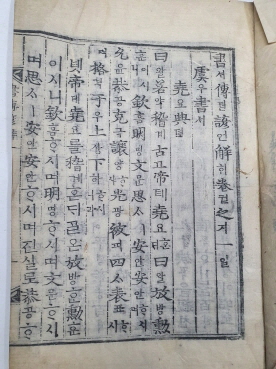 書셔傳뎐諺언解ᄒᆡ卷권之지一일
虞우書셔
堯요典뎐
曰왈若약稽계古고帝뎨堯요혼ᄃᆡ曰왈放방勳훈
이시니欽흠明명文문思ᄉᆞㅣ安안安안ᄒᆞ시며
允윤恭공克극讓양ᄒᆞ샤光광被피四ᄉᆞ表표ᄒᆞ시
며格격于우上샹下하ᄒᆞ시니라
녯帝뎨堯요를稽계혼ᄃᆡᄀᆞᆯ온放방勳훈
이시니欽흠ᄒᆞ시며明명ᄒᆞ시며文문ᄒᆞ시
며思ᄉᆞㅣ安안安안ᄒᆞ시며진실로恭공ᄒᆞ